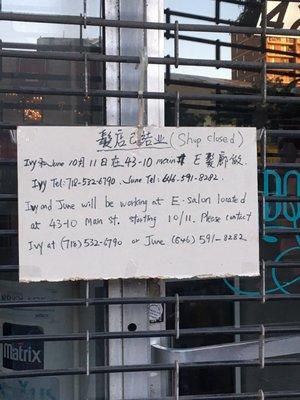 髮店已结业 (Shop closed)
Ivy和June 10月11日在43-10 main# E髮廊
Ivy Tel: 718-532-6790. June Tel: 646-591-8282.
Ivy and June will be working at E-salon located
at 43-10 Main St. starting 10/11. Please contact
Ivy at (718) 532-6790 or June (646) 591-8282
Matrix